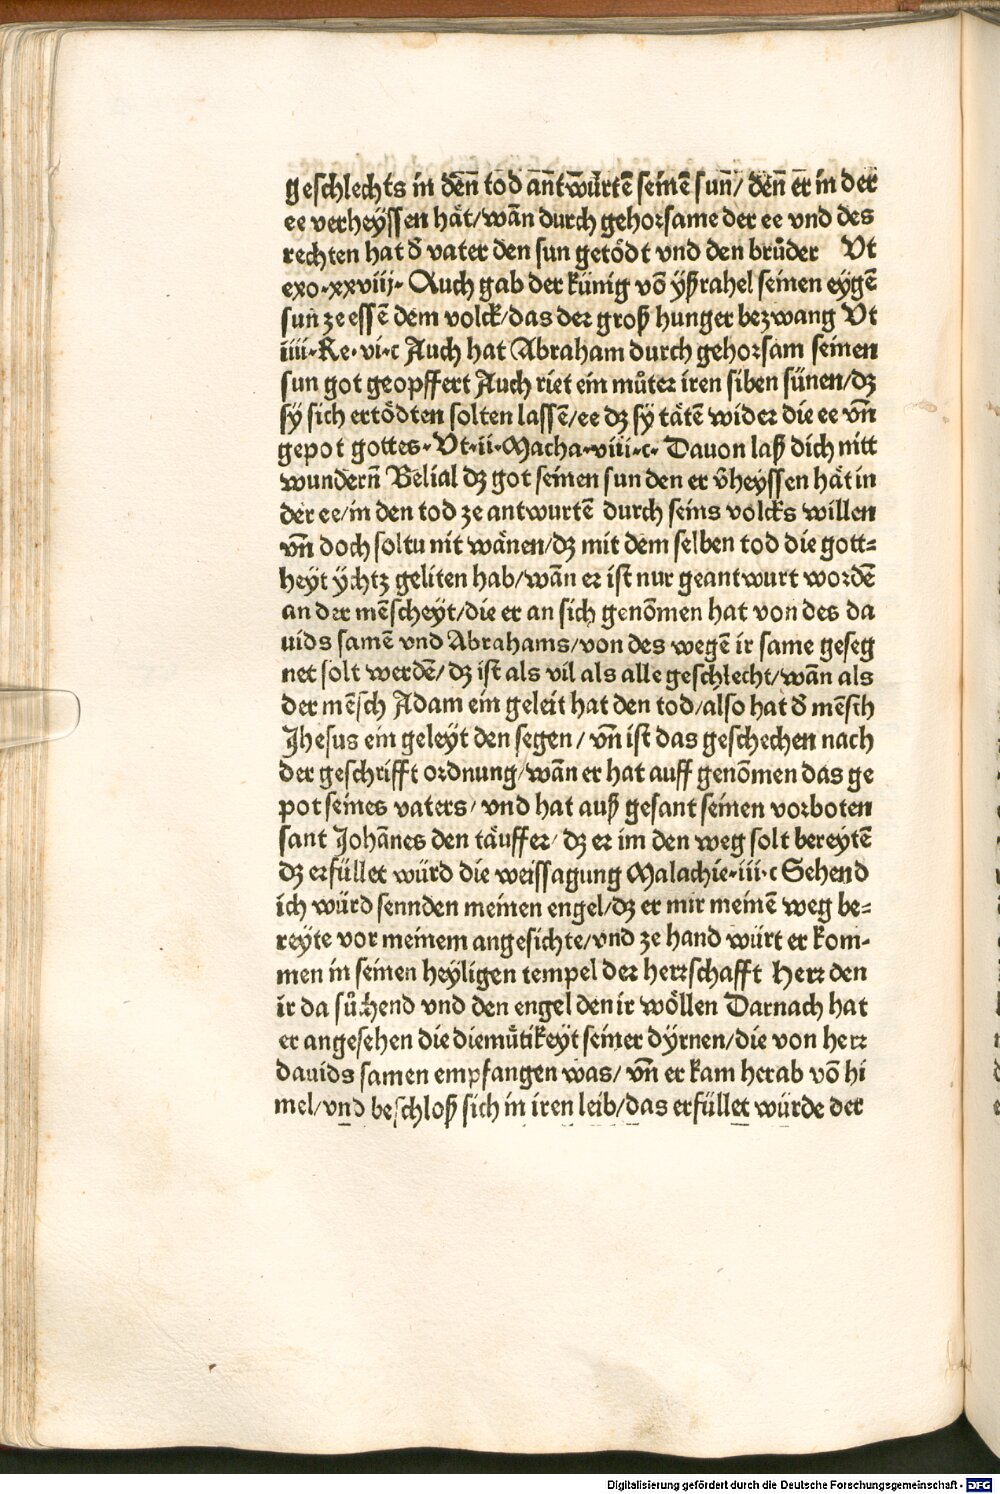 geschlechts in deñ tod añtwürtē seinē suñ/ deñ er in der
ee verheyssen hät/wān durch gehorsame der ee vnd des
rechten hat d̄ vater den sun getödt vnd den brůder Vt
exo·xxviij· Auch gab der künig vō yßrahel seinen eygē
sun ze essē dem volck/das der groß hunger bezwang Vt
iiii·Re·vi·c Auch hat Abraham durch gehorsam seinen
sun got geopffert Auch riet ein můter iren siben sünen/dz
sÿ sich ertödten solten lassē/ee dz sÿ tätē wider die ee vñ
gepot gottes·Vt·ii·Macha·viii·c· Dauon laß dich nitt
wundern̄ Belial dz got seinen sun den er v̄heyssen hät in
der ee/in den tod ze antwurtē durch seins volcks willen
vñ doch soltu nit wänen/dz mit dem selben tod die gott-
heyt ÿchtz geliten hab/wān er ist nur geantwurt wordē
an der mēscheyt/die er an sich genōmen hat von des da
uids samē vnd Abrahams/von des wegē ir same geseg
net solt werdē/dz ist als vil als alle geschlecht/wān als
der mēsch Adam ein geleit hat den tod/also hat d̄ mēsch
Jhesus ein geleyt den segen/ vñ ist das geschechen nach
der geschrifft ordnung/wān er hat auff genōmen das ge
pot seines vaters/ vnd hat auß gesant seinen vorboten
sant Johānes den täuffer/ dz er im den weg solt bereytē
dz erfüllet würd die weissagung Malachie·iii·c Sehend
ich würd sennden meinen engel/dz er mir meinē weg be-
reyte vor meinem angesichte/vnd ze hand würt er kom-
men in seinen heyligen tempel der herrschafft Herr den
ir da sůchend vnd den engel den ir wöllen Darnach hat
er angesehen die diemůtikeyt seiner dyrnen/die von herr
dauids samen empfangen was/ vñ er kam herab vō hi
mel/vnd beschloß sich in iren leib/das erfüllet würde der
Digitalisierung gefördert durch die Deutsche Forschungsgemeinschaft - DFG